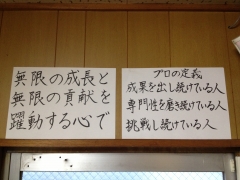 無限の成長と
無限の貢献を
躍動する心で
プロの定義
成果を出し続けている人
専門性を磨き続けている人
挑戦し続けている人